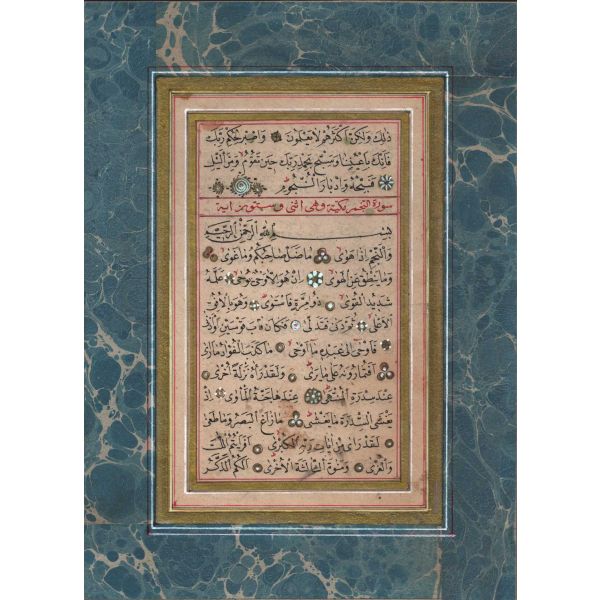 ذلك ولكن اكثرهم لا يعلمون واصبر لحكم ربك
فانك باعيننا وسبح بحمد ربك حين تقوم ومن الليل
فسبحه وادبار النجوم
سورة النجم مكية وهى اثنى وستون اية
بسم الله الرحمن الرحيم
والنجم اذا هوى ما ضل صاحبكم وما غوى
وما ينطق عن الهوى ان هو الا وحى يوحى علمه
شديد القوى ذو مرة فاستوى وهو بالافق
الاعلى ثم دنى فتدلى فكان قاب قوسين او ادنى
فاوحى الى عبده ما اوحى ما كذب الفؤاد ما راى
افتمارونه على ما يرى ولقد راه نزلة اخرى
عند سدرة المنتهى عندها جنة المأوى اذ
يغشى السدرة ما يغشى ما زاغ البصر وما طغى
لقد راى من ايات ربه الكبرى افرايتم اللات
والعزى ومنوة الثالثة الاخرى الكم الذكر